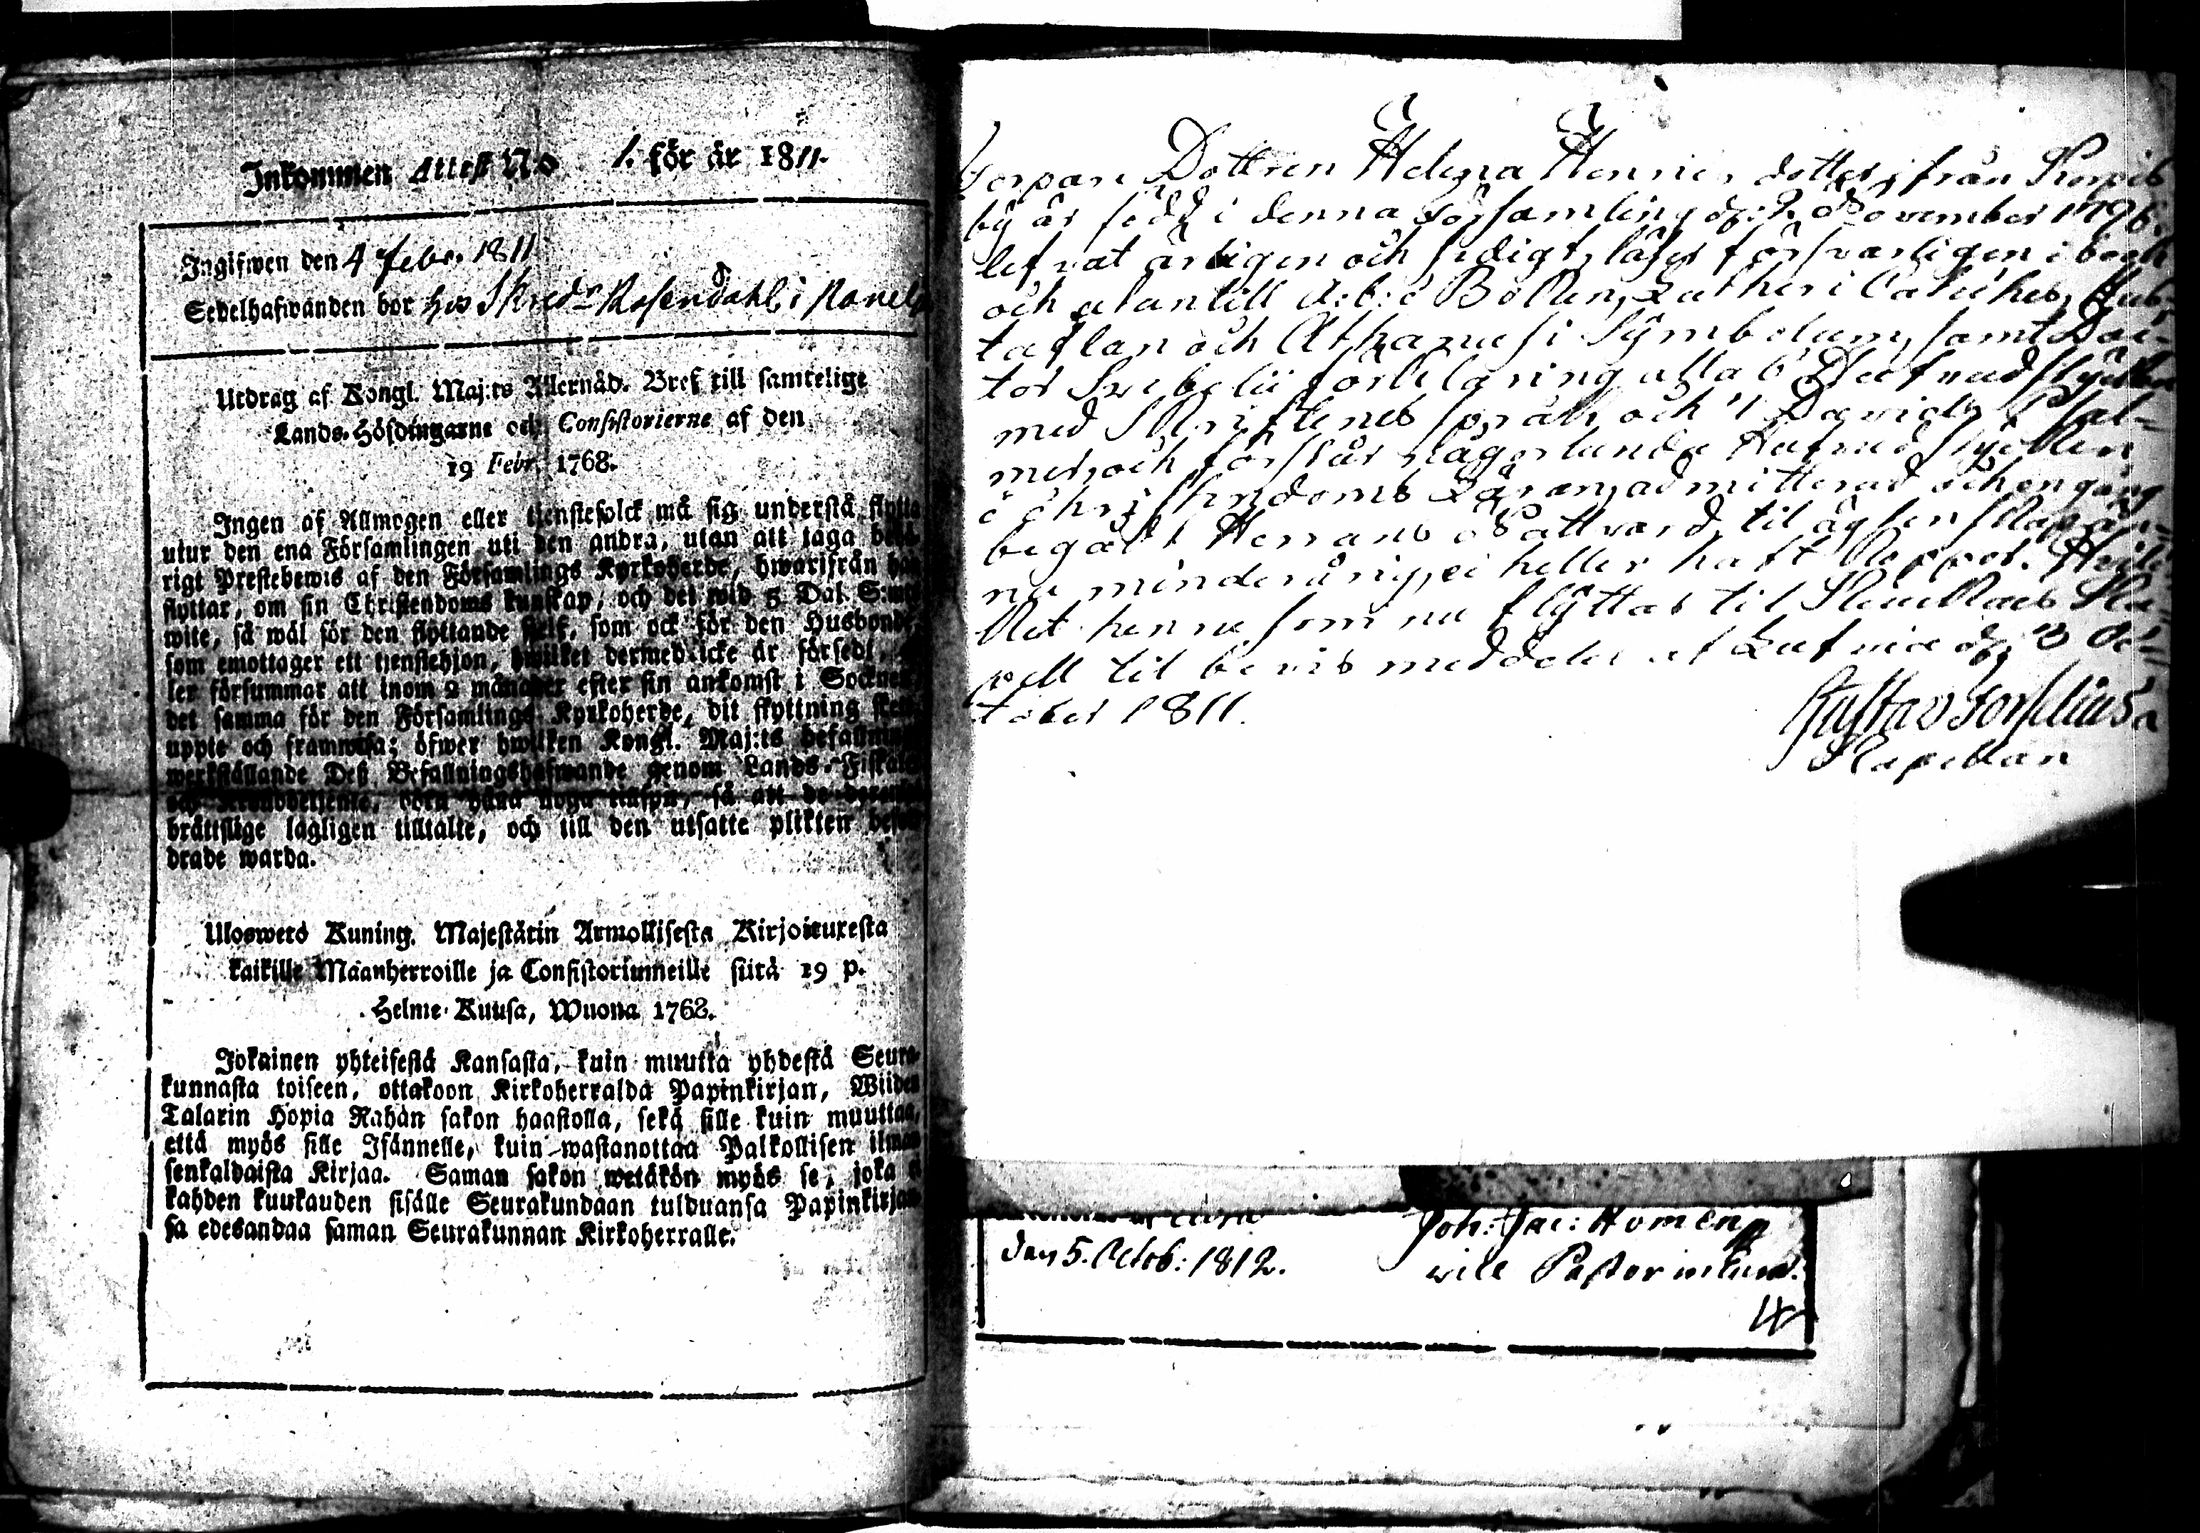 Inkommen Attest No 1. för år 1811.
Ingifwen den 4 Febr. 1811
Sedelhafwanden bor hos Skredr Rosendahl i
Utdrag af Kongl. Maj:ts Allernåd. Bref till samtelige
Lands-Höfdingarne och Consistorierne af den
19 Febr. 1768.
Ingen af Allmogen eller tjenstefolck må sig understå flytta
utur den ena Församlingen uti den andra, utan att taga
rigt Prestebewis af den Församlings Kyrkoherde, hwarifrån han
flyttar, om sin Christendoms kunskap, och det wid 5 Dal. S:mt
wite, så wäl för den flyttande sielf, som ock för den Husbonde,
som emottager ett tjenstehjon, hwilket dermed icke är försedt,
ler försummar att inom 2 månader efter sin ankomst i Socknen
det samma för den Församlings Kyrkoherde, dit flyttning
uppte och framwisa; öfwer hwilken Kongl. Maj:ts befallning
werkställande Deß Befallningshafwande genom Lands-Fiskaler
så att de
brättslige lagligen tilltalte, och till den utsatte plikten
drade warda.
Uloswetö Kuning. Majestätin Armollisesta Kirjoituxesta
kaikille Maanherroille ja Consistoriumeille siitä 19 p.
Helme-Kuusa, Wuona 1768.
Jokainen yhteisestä Kansasta, kuin muutta yhdestä Seura-
kunnasta toiseen, ottakoon Kirkoherralda Papinkirjan, Wiiden
Talarin Hopia Rahan sakon haastolla, sekä sille kuin muuttaa,
että myös sille Isännelle, kuin wastanottaa Palkollisen ilman
senkaldaista Kirjaa. Saman sakon wetäkön myös se, joka
kahden kuukauden sisälle Seurakundaan tulduansa Papinkirjan
sa edesandaa saman Seurakunnan Kirkoherralle.
Dottren Helena Henrics dotter, från
by är född i denna församling d: 2 November 1796.
lefvat ärligen och sedigt, läser försvarligen i bok
och utantill A:b:c Boken, Lutheri Cateches, Hus-
taflan och Athanasii Symbolum, samt Doc-
tor Svebelii förklaring alla 6 Hufvudstycken
med Skriftenes språk och 7 Davids Psal-
mer, och förstår någorlunda Hufvudstycken
i Christendoms Läran, admitterad och en gång
begådt Herrans Nattvard, til ägtenskap än-
nu minderårig, ei heller haft Koppor.
ket henne som nu flyttar til
pell til bevis meddelas af d. 3 Oc-
tober 1811.
Gustav Forselius
Kapellan
den 5. Octob: 1812.
Joh: Jac: Homen
vice Pastor in